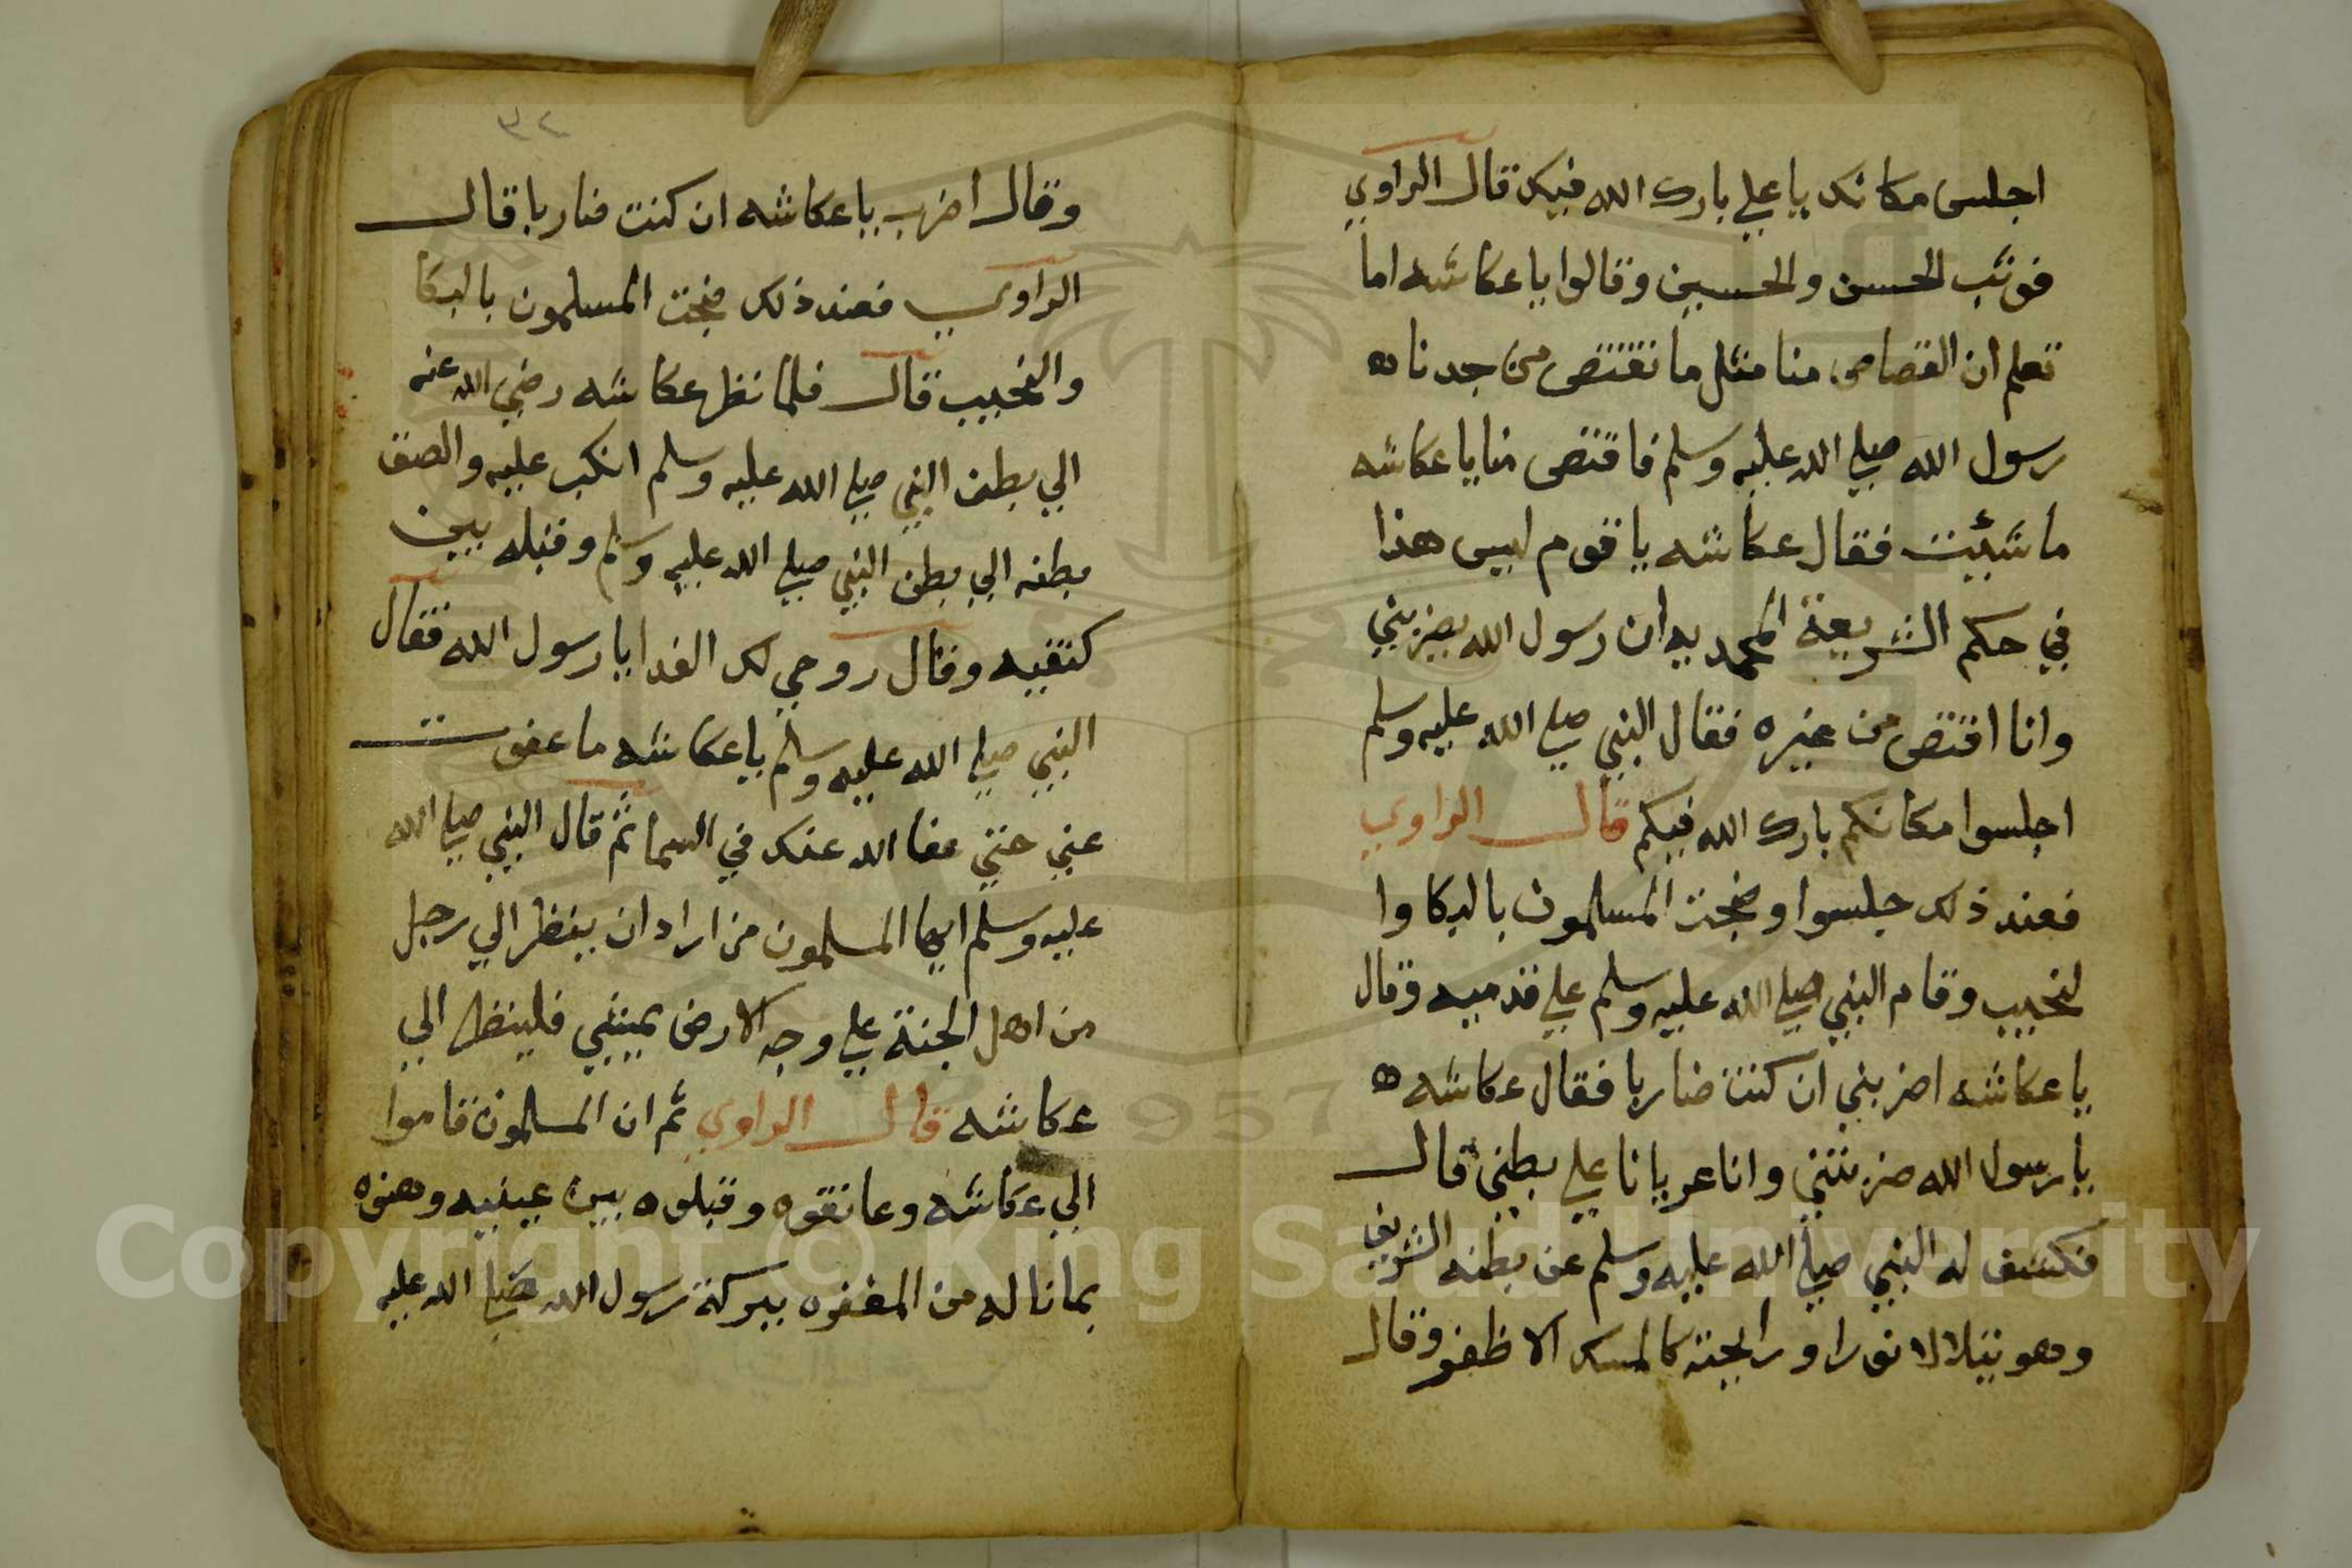 اجلس مكانك يا علي بارك الله فيك قال الراوي
فوثب الحسن والحسين وقالوا يا عكاشه اما
تعلم ان القصاص منا مثل ما تقتص من جدنا ه
رسول الله صلي الله عليه وسلم فاقتص منا يا عكاشه
ما شئيت فقال عكاشه يا قوم ليس هذا
في حكم الشريعة المحمديه ان رسول الله يضربني
وانا اقتص من غيره فقال النبي صلي الله عليه وسلم
اجلسوا مكانكم بارك الله فيكم قال الراوي
فعند ذلك جلسوا وضجت المسلمون بالبكا وا
لنحيب وقام النبي صلي الله عليه وسلم علي قدميه وقال
يا عكاشه اضربني ان كنت ضاربا فقال عكاشه ه
يا رسول الله ضربتني وانا عريانا علي بطني قال
فكشف له النبي صلي الله عليه وسلم عن بطنه الشريف
وهو يتلالا نورا ورايحته كالمسك الاظفر وقال
٣٢
وقال اضرب يا عكاشه ان كنت ضاربا قال
الراوي فعند ذلك ضجت المسلمون بالبكا
والنحيب قال فلما نظر عكاشه رضي الله عنه
الي بطن النبي صلي الله عليه وسلم انكب عليه والصق
بطنه الي بطن النبي صلي الله عليه وسلم وقبله بين
كتفيه وقال روحي لك الفدا يا رسول الله فقال
النبي صلي الله عليه وسلم يا عكاشه ما عفوت
عني حتي عفا الله عنك في السما ثم قال النبي صلي الله
عليه وسلم ايها المسلمون من اراد ان ينظر الي رجل
من اهل الجنة علي وجه الارض يمشي فلينظر الي
عكاشه قال الراوي ثم ان المسلمون قاموا
الي عكاشه وعانقوه وقبلوه بين عينيه وهنوه
بما ناله من المغفره ببركة رسول الله صلي الله عليه
Copyright © King Saud University
1957